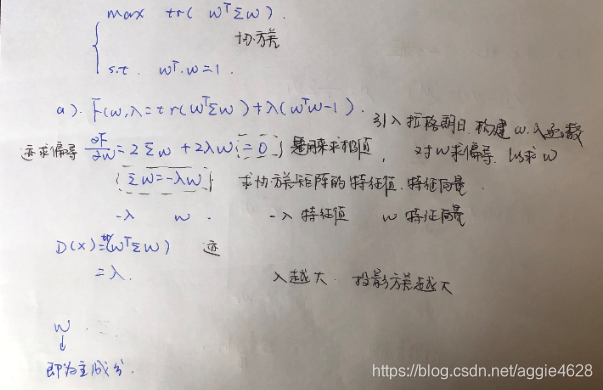 max tr(wᵀΣw).
协方差
s.t. wᵀ.w=1.
a). F(w,λ=tr(wᵀΣw)+λ(wᵀw-1). 引入拉格朗日,构建w,λ函数
迹求偏导 ∂F/∂w=2Σw+2λw=0 是用来求极值, 对w求偏导,以求w
Σw=-λw 求协方差矩阵的特征值.特征向量.
-λ w . -λ 特征值 w 特征向量
D(X)=(wᵀΣw) 迹
=λ. λ越大.投影方差越大
w
↓
即为主成分.
https://blog.csdn.net/aggie4628